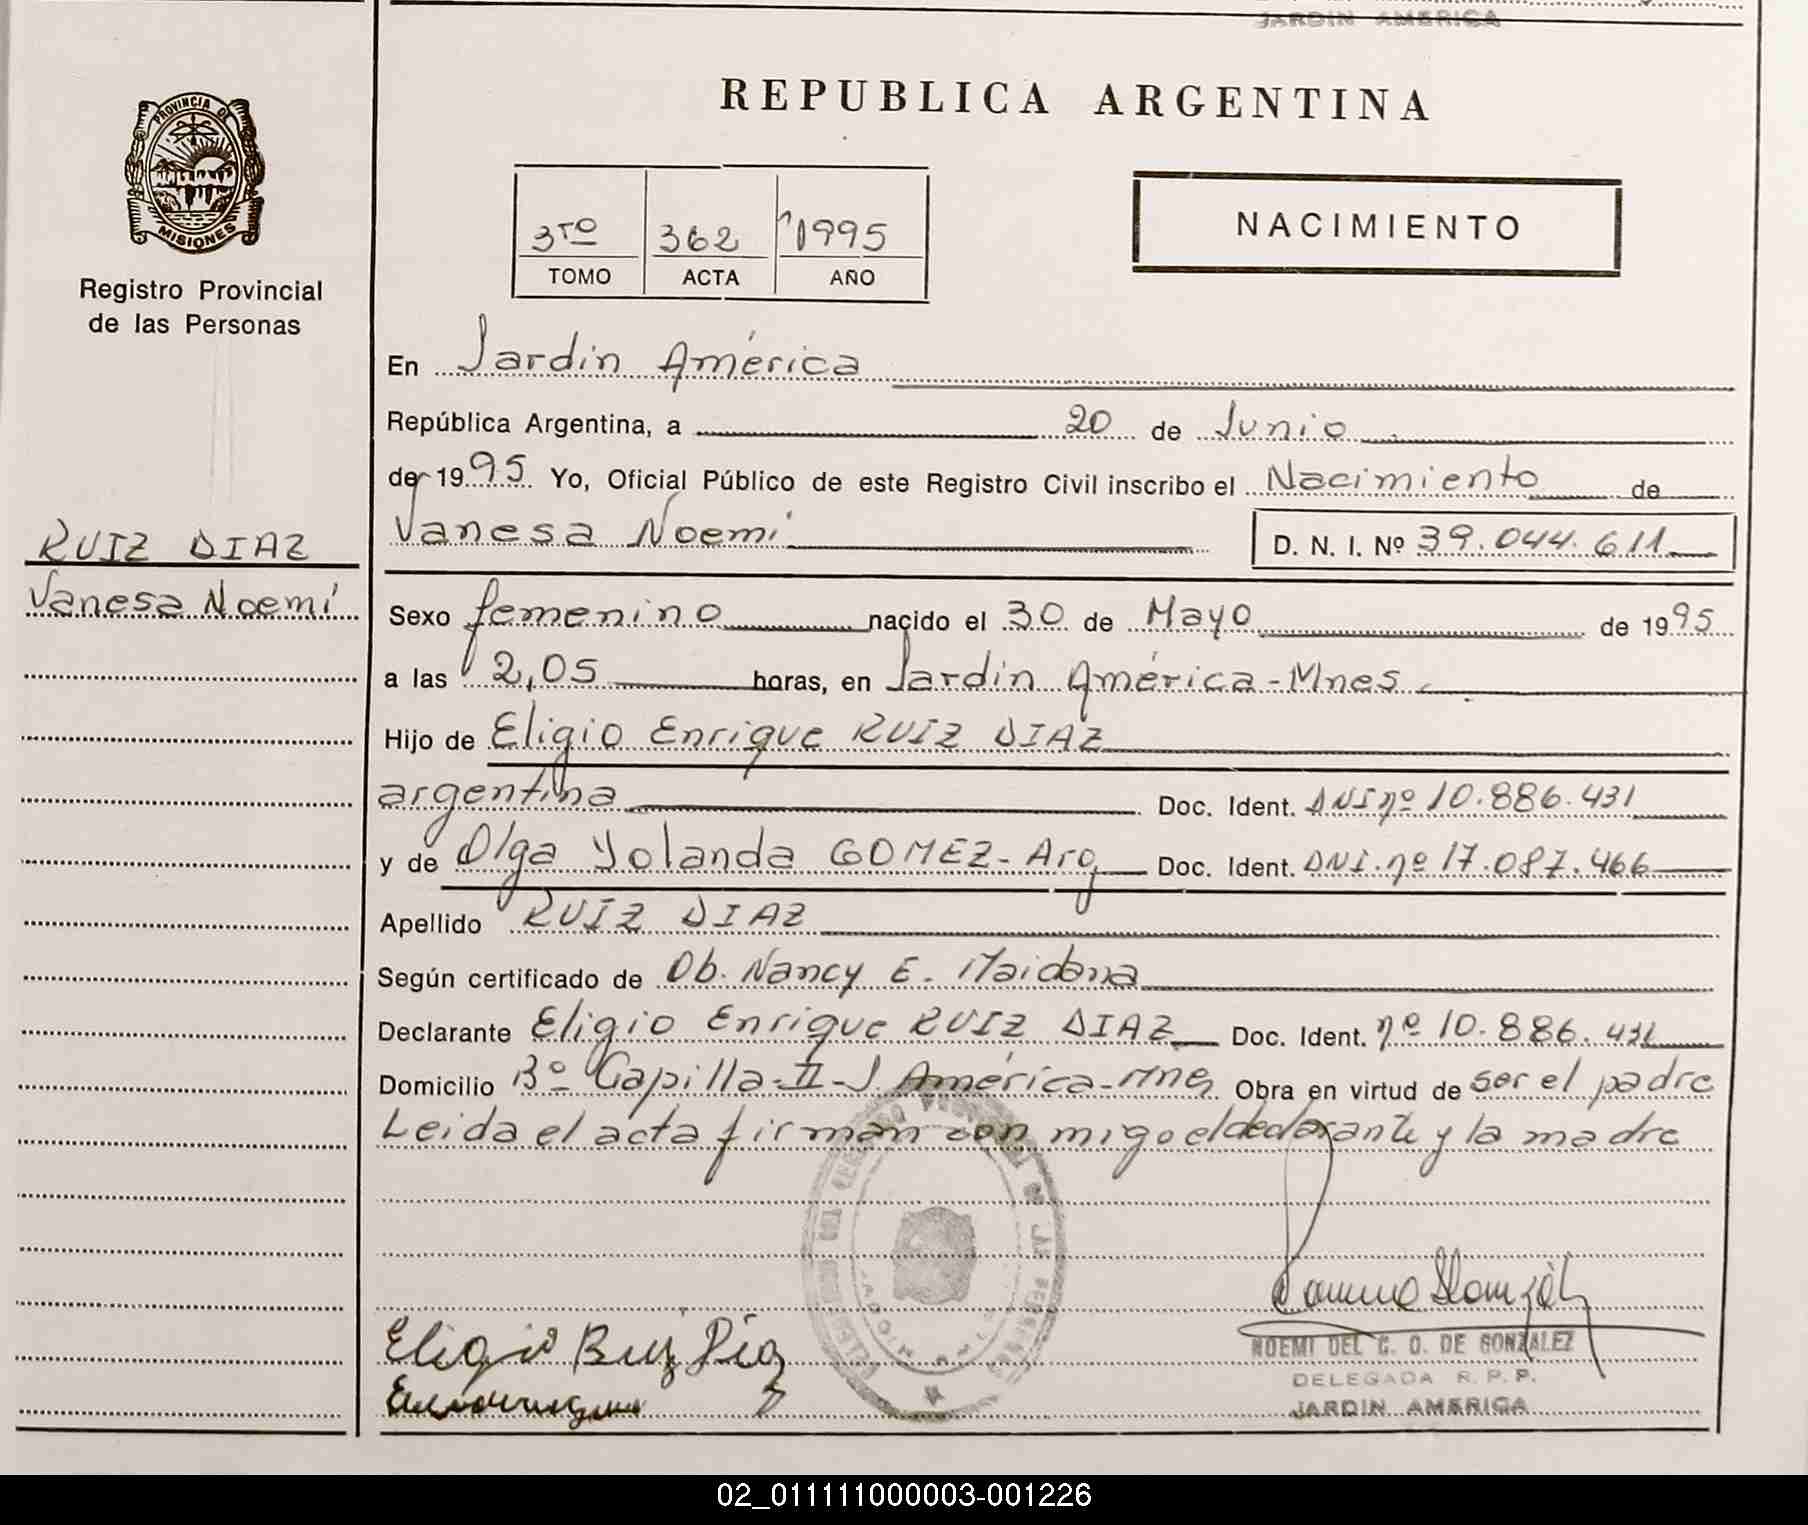 JARDIN AMERICA
REPUBLICA ARGENTINA
PROVINCIA DE
MISIONES
Registro Provincial
de las Personas
3ro 362 1995
TOMO ACTA AÑO
NACIMIENTO
En Jardin América
República Argentina, a 20 de Junio
de 1995. Yo, Oficial Público de este Registro Civil inscribo el Nacimiento de
Vanesa Noemí D. N. I. Nº 39.044.611
RUIZ DIAZ
Vanesa Noemí
Sexo femenino nacido el 30 de Mayo de 1995
a las 2,05 horas, en Jardin América-Mnes.
Hijo de Eligio Enrique RUIZ DIAZ
argentina Doc. Ident. DNI nº 10.886.431
y de Olga Yolanda GOMEZ-Arg Doc. Ident. DNI.nº 17.087.466
Apellido RUIZ DIAZ
Según certificado de Ob. Nancy E. Maidana
Declarante Eligio Enrique RUIZ DIAZ Doc. Ident. nº 10.886.431
Domicilio Bº Capilla-II-J. América-Mnes Obra en virtud de ser el padre
Leida el acta firman con migo el declarante y la madre
Eligio Ruiz Díaz
NOEMI DEL C. O. DE GONZALEZ
DELEGADA R. P. P.
JARDIN AMERICA
02_011111000003-001226